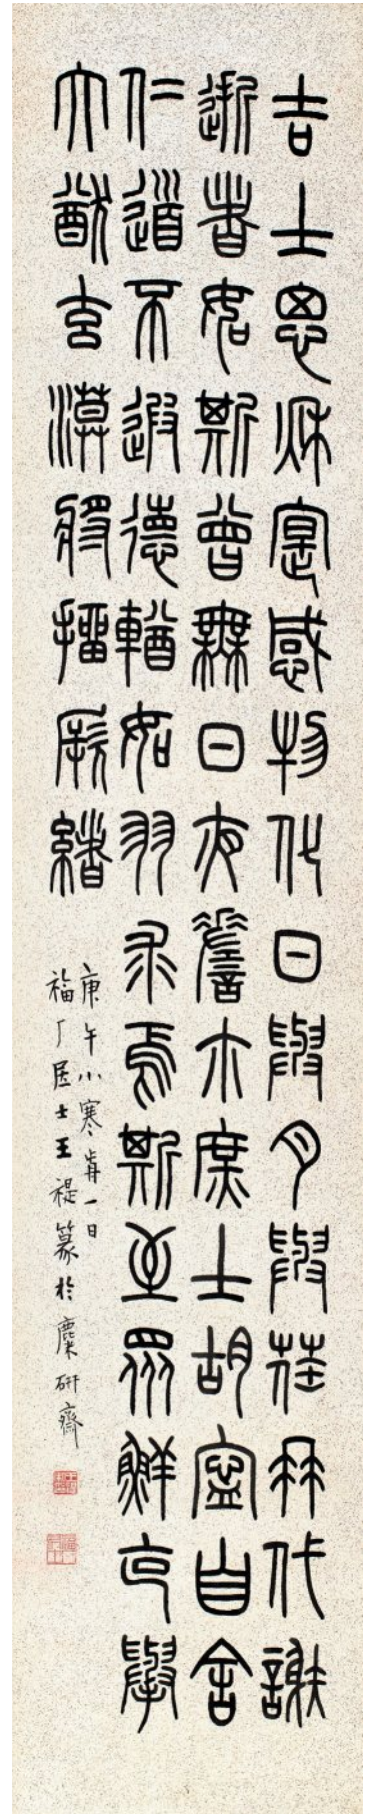 吉士思秋寔感物化日與月與荏苒代謝
逝者如斯曾無日夜嗟尒庶士胡寧自舍
仁道不遐德輶如羽求焉斯至眾鮮克舉
大猷玄漠將抽厥緒
庚午小寒歬一日
福厂居士王禔篆於麋研齋